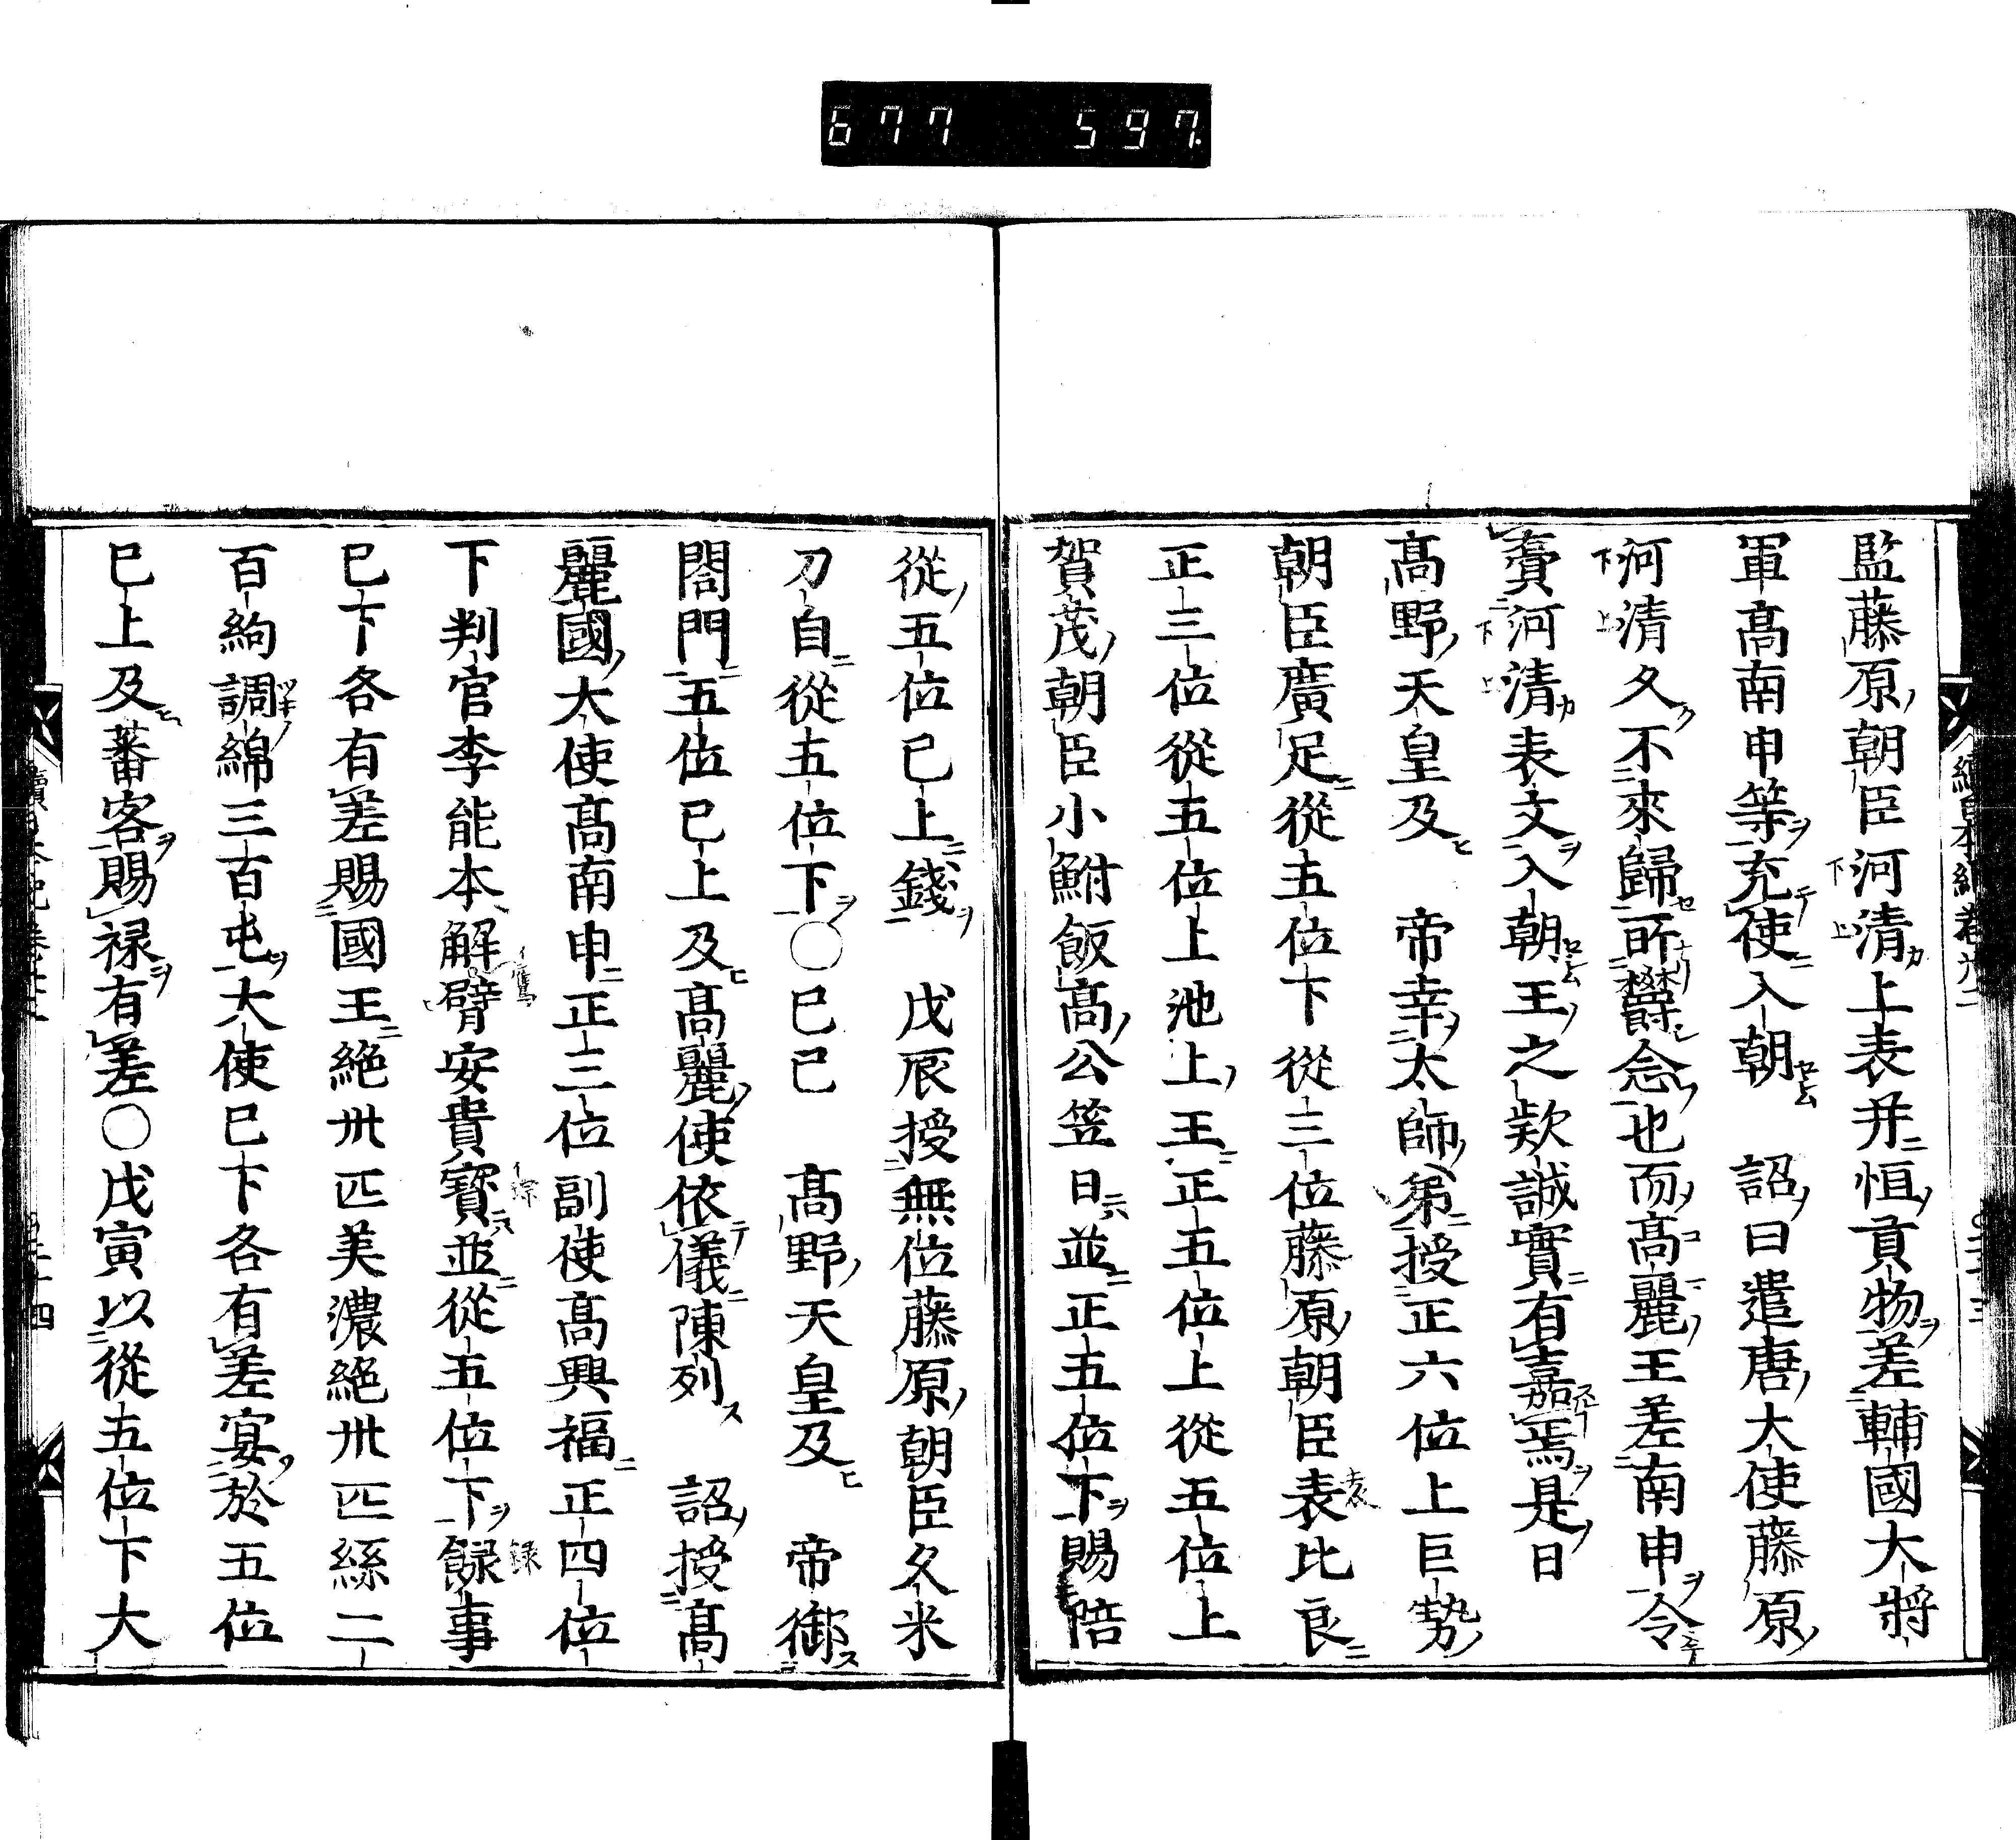 677 597.
監藤原朝臣河清上表并恒貢物差輔國大將
軍髙南申等充使入朝 詔曰遣唐大使藤原
河清久不來歸所欝念也而髙麗王差南申令
賷河清表文入朝王之欵誠實有嘉焉是日
髙野天皇及 帝幸太師第授正六位上巨勢
朝臣廣足從五位下從三位藤原朝臣表比良
正三位從五位上池上王正五位上從五位上
賀茂朝臣小鮒飯髙公笠日並正五位下賜陪
從五位已上錢 戊辰授無位藤原朝臣久米
刀自從五位下○己巳 髙野天皇及 帝御
閤門五位已上及髙麗使依儀陳列 詔授髙
麗國大使髙南申正三位副使髙興福正四位
下判官李能本解臂安貴寳並從五位下錄事
已下各有差賜國王絁卅匹美濃絁卅匹絲二
百絇調綿三百屯大使已下各有差宴於五位
已上及蕃客賜禄有差○戊寅以從五位下大